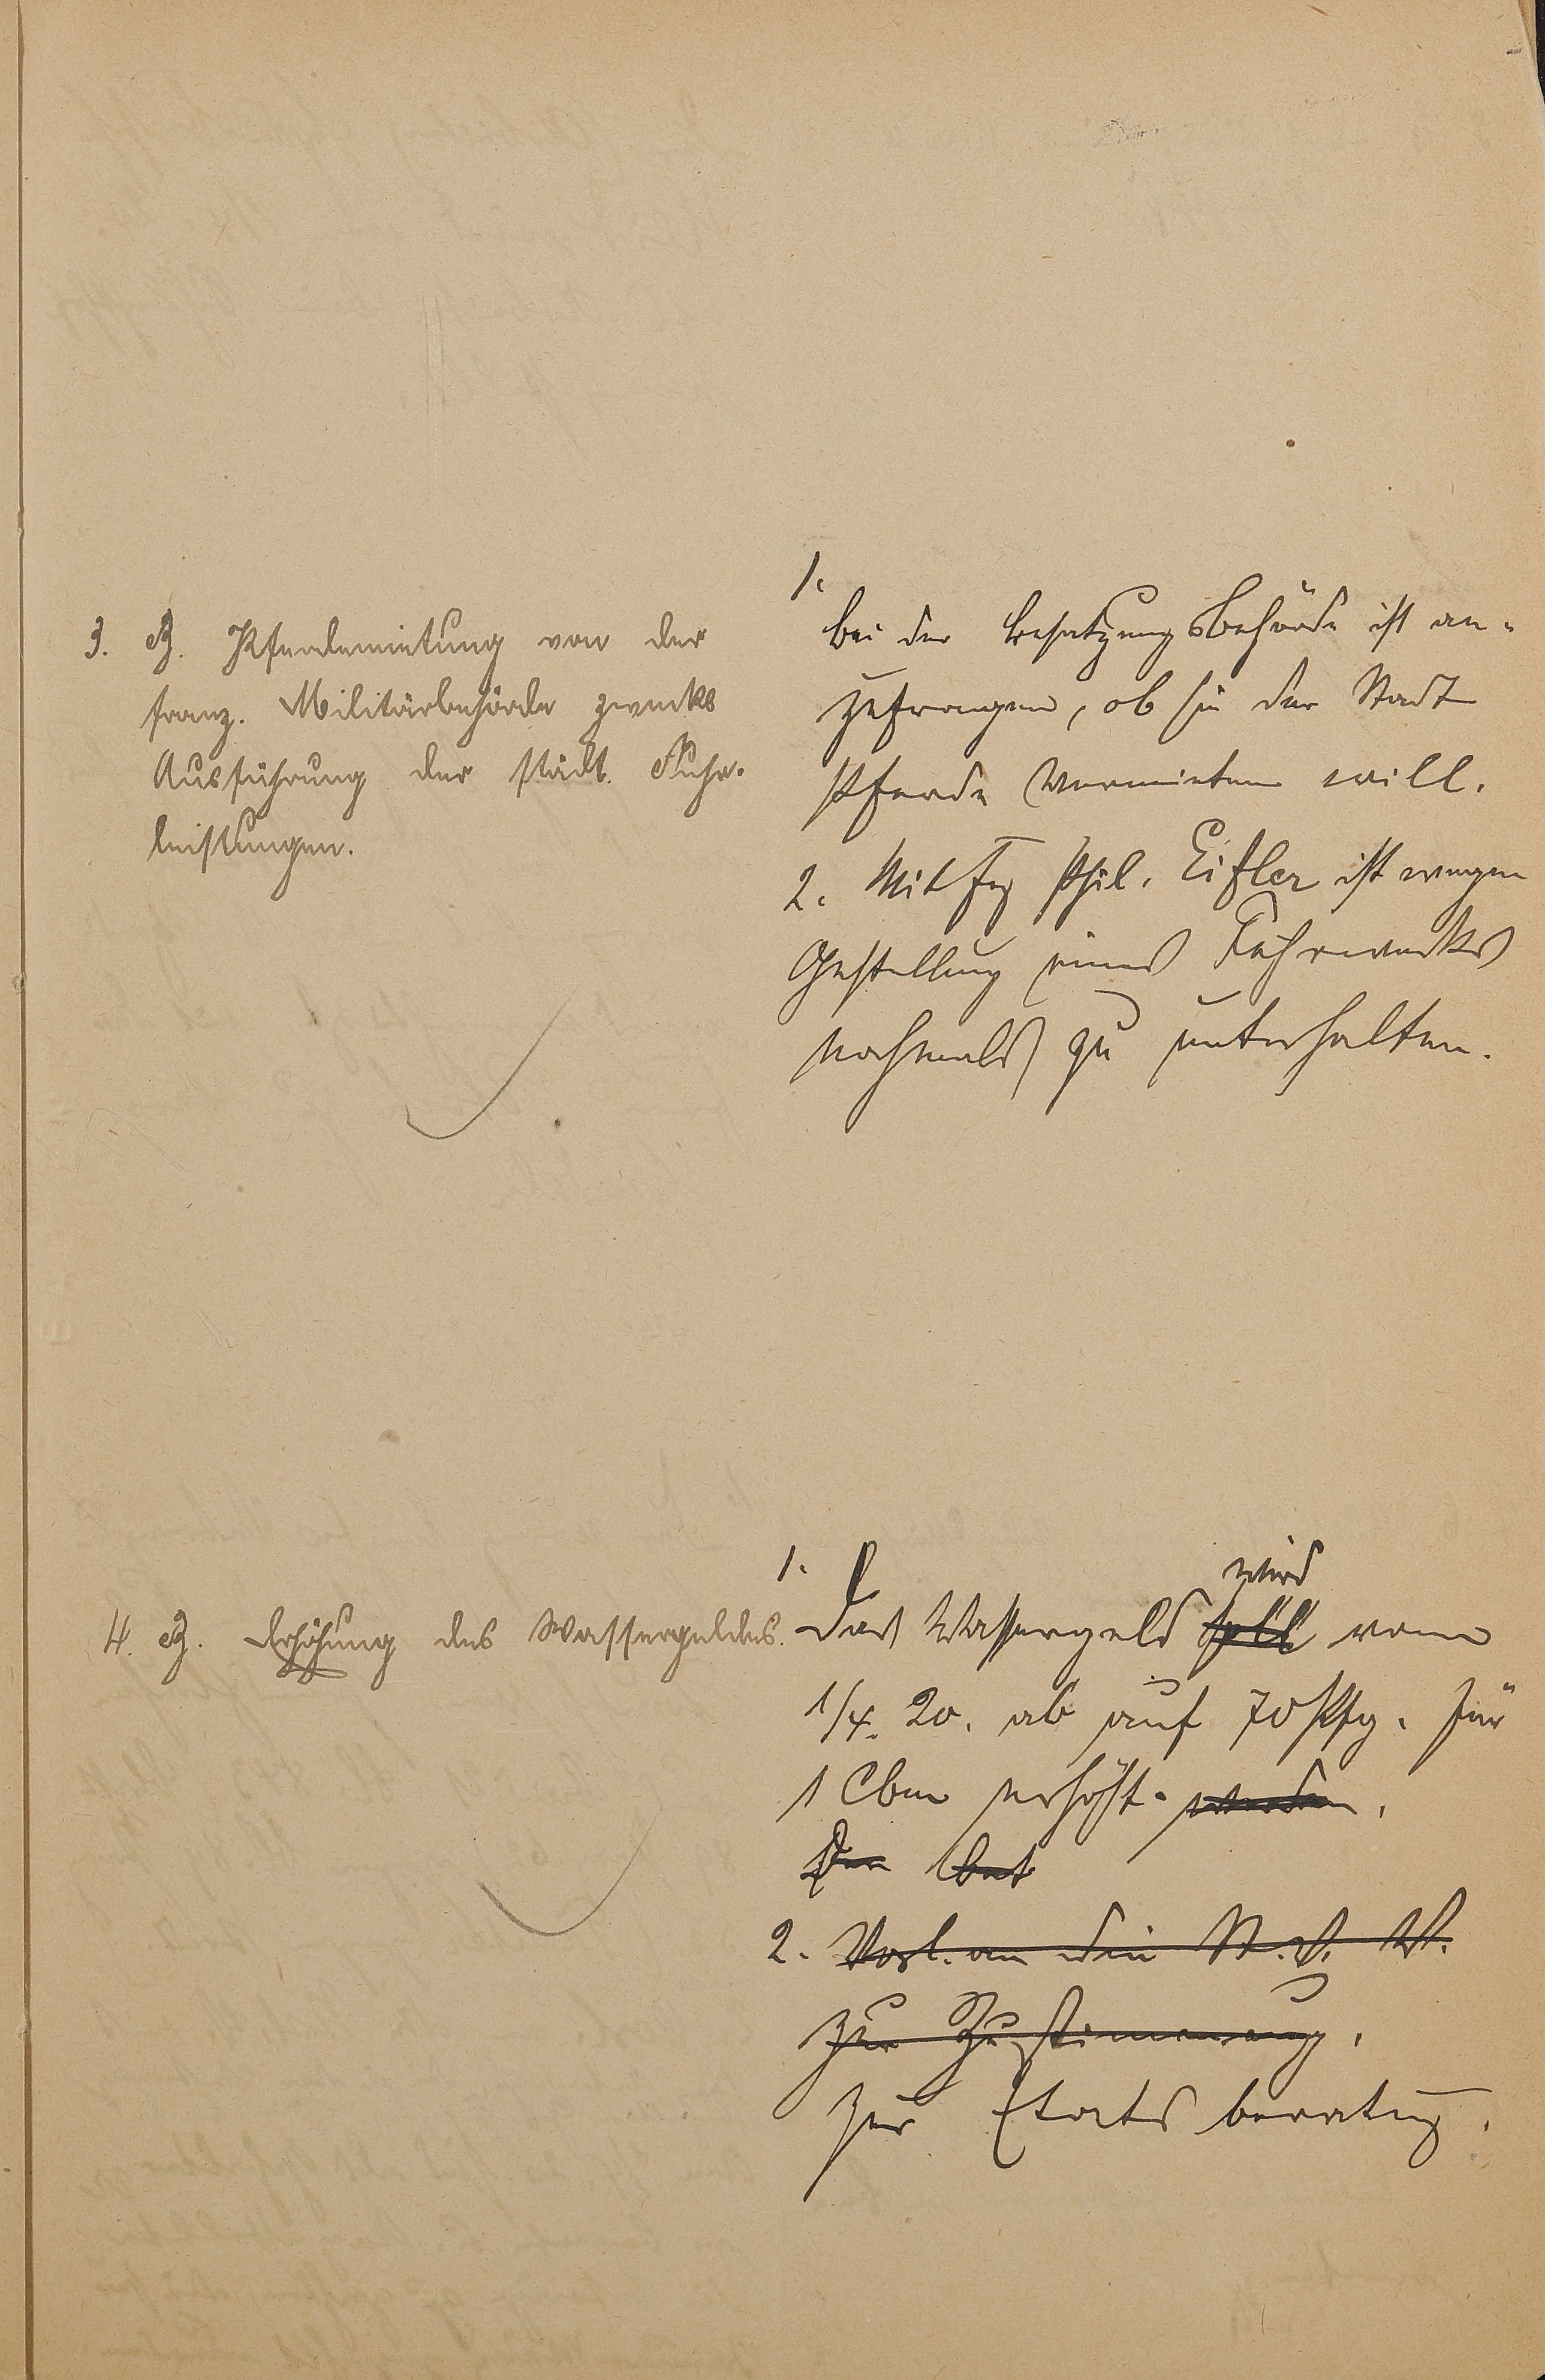 3. B. Pferdemietung von der
franz. Militärbehörde zwecks
Ausführung der städt. Fuhr-
leistungen.
1.
bei der Besatzungsbehörde ist an-
zufragen, ob sie der Stadt
Pferde vermieten will.
2. Mit Phil. Eifler ist wegen
Gestellung eines Fuhrwerks
nochmals zu unterhalten.
4. B. Erhöhung des Wassergeldes.
1.
wird
Das Wassergeld soll vom
1/4. 20. ab auf 70 Pfg. für
1 Cbm erhöht. werden.
Der
2. Vorl. an die St. V. V.
zur Zustimmung.
zur Etatsberatung.